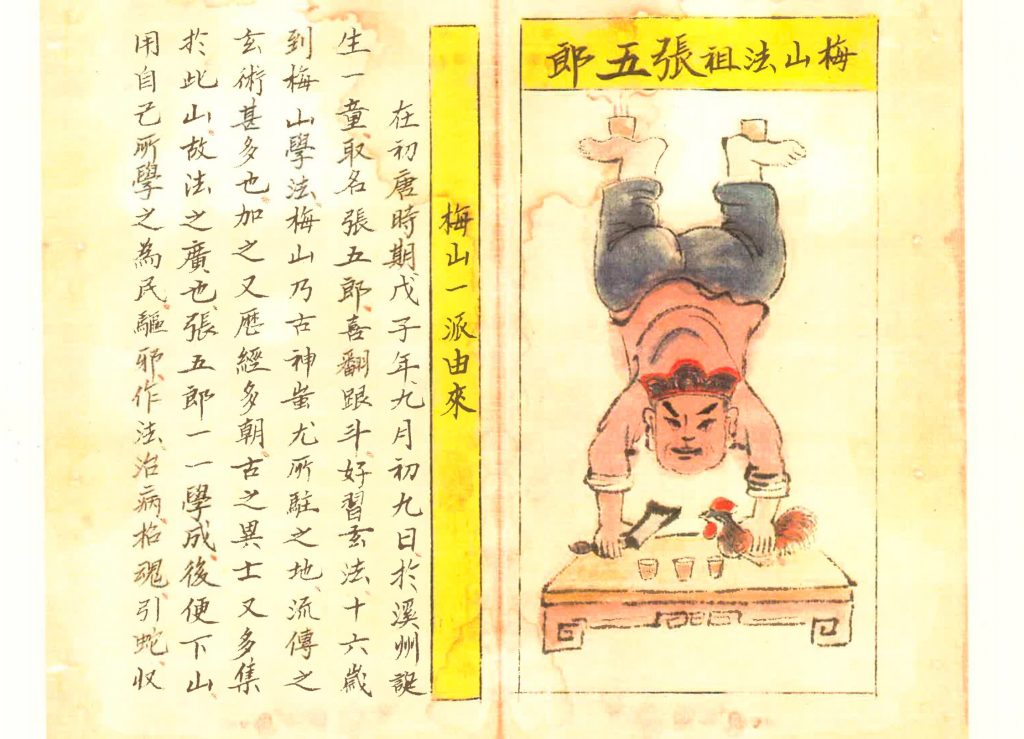 梅山法祖張五郎
梅山一派由來
在初唐時期戊子年九月初九日於溪州誕
生一童取名張五郎喜翻跟斗好習玄法十六歲
到梅山學法梅山乃古神蚩尤所駐之地流傳之
玄術甚多也加之又歷經多朝古之異士又多集
於此山故法之廣也張五郎一一學成後便下山
用自己所學之為民驅邪作法治病招魂引蛇収